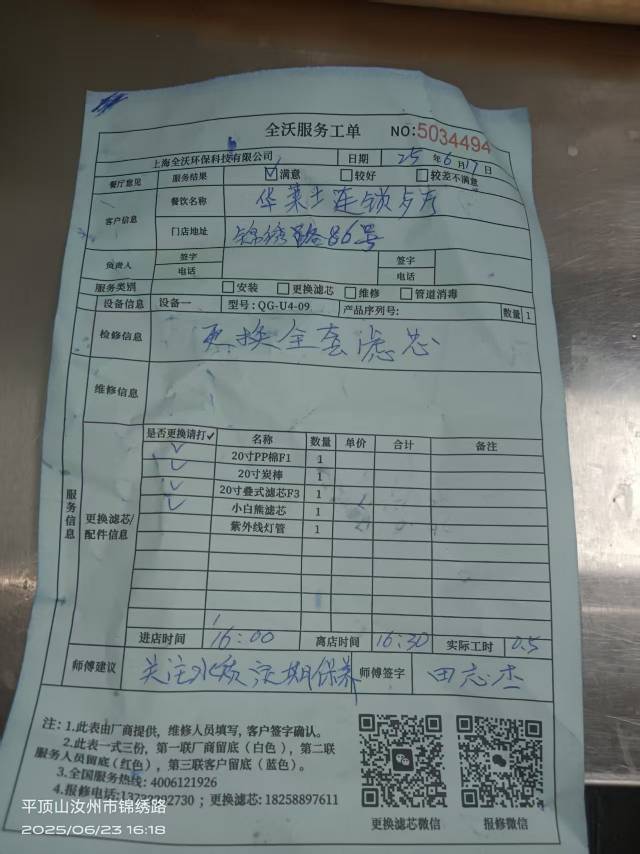 全沃服务工单 NO:5034494
上海全沃环保科技有限公司 日期 25年6月17日
餐厅意见 服务结果 ☑满意 □较好 □较差不满意
客户信息 餐饮名称 华莱士连锁
门店地址 锦绣路86号
负责人 签字 签字
电话 电话
服务类别 □安装 □更换滤芯 □维修 □管道消毒
设备信息 设备一 型号:QG-U4-09 产品序列号: 数量 1
检修信息 更换全套滤芯
维修信息
服务信息
更换滤芯/配件信息
是否更换请打✓ 名称 数量 单价 合计 备注
✓ 20寸PP棉F1 1
✓ 20寸炭棒 1
✓ 20寸叠式滤芯F3 1
✓ 小白熊滤芯 1
紫外线灯管 1
进店时间 16:00 离店时间 16:30 实际工时 0.5
师傅建议 关注水质定期保养 师傅签字 田志杰
注: 1.此表由厂商提供，维修人员填写，客户签字确认。
2.此表一式三份，第一联厂商留底（白色），第二联
服务人员留底(红色)，第三联客户留底（蓝色）。
3.全国服务热线: 4006121926
4.报修电话: ；更换滤芯: 18258897611
更换滤芯微信 报修微信
平顶山汝州市锦绣路
2025/06/23 16:18